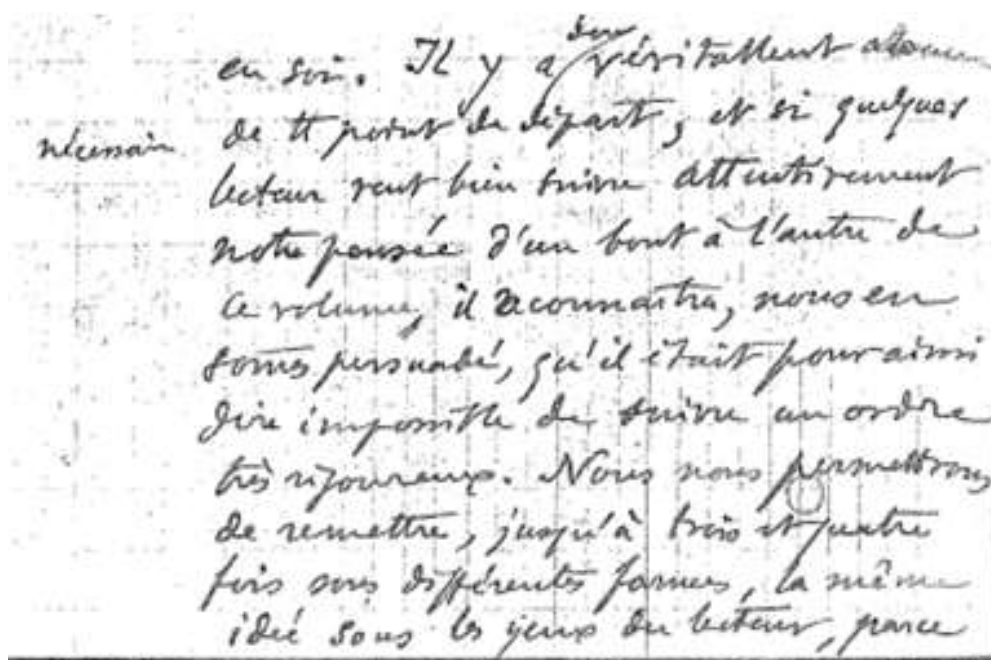 en soi. Il y a donc véritablement absence
nécessaire
de tt point de départ, et si quelques
lecteur veut bien suivre attentivement
notre pensée d'un bout à l'autre de
ce volume, il reconnaîtra, nous en
soms persuadé, qu'il était pour ainsi
dire impossible de suivre un ordre
très rigoureux. Nous nous permettrons
de remettre, jusqu'à trois et quatre
fois sous différentes formes, la même
idée sous les yeux du lecteur, parce